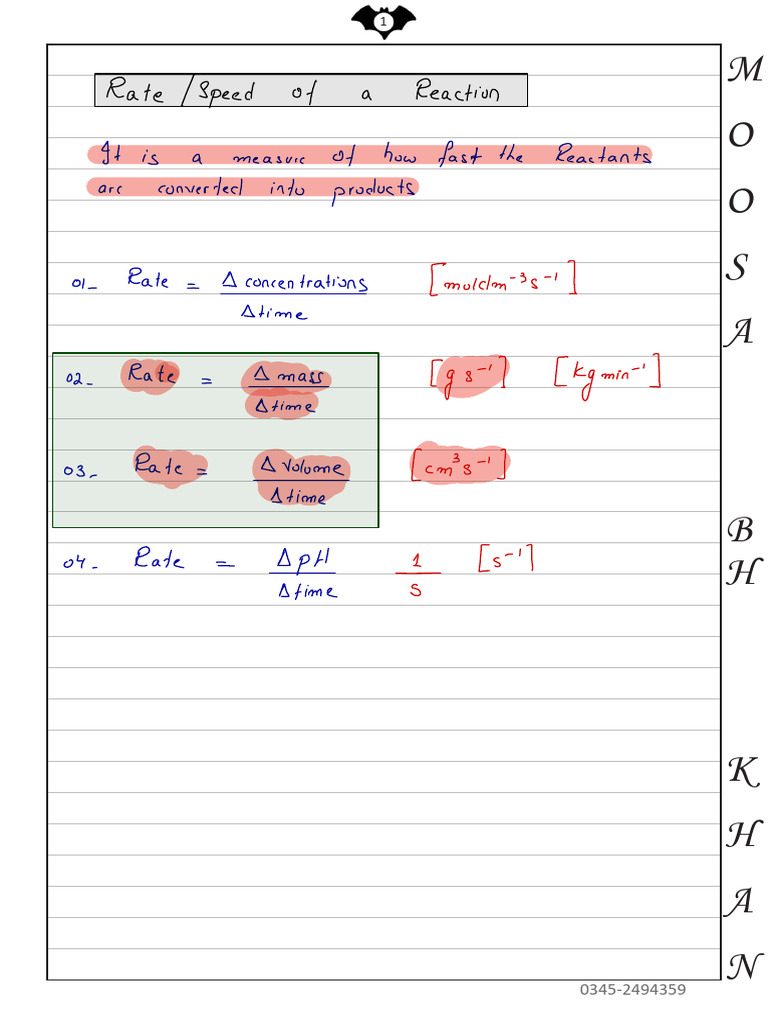 1
Rate / Speed of a Reaction
It is a measure of how fast the Reactants
are converted into products
01- Rate = Δ concentrations / Δ time [moldm⁻³s⁻¹]
02- Rate = Δ mass / Δ time [g s⁻¹] [kg min⁻¹]
03- Rate = Δ Volume / Δ time [cm³s⁻¹]
04- Rate = Δ pH / Δ time 1 / s [s⁻¹]
MOOSA BHH KHAN
0345-2494359